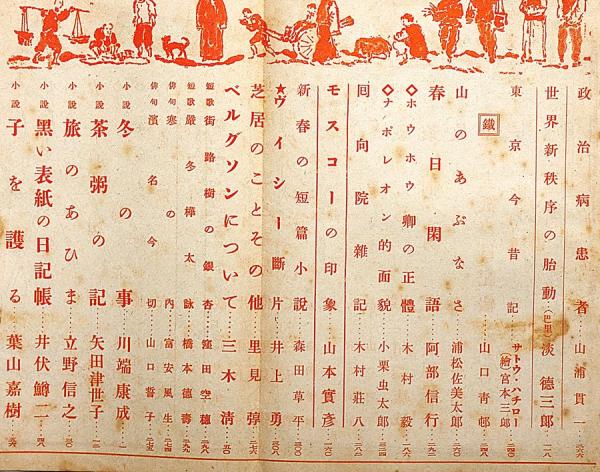 政治病患者……山浦貫一
世界新秩序の胎動(巴里)…淡德三郎
東京今昔記 サトウハチロー (繪)宮本三郎
鐵……山口青邨
山のあぶなさ……浦松佐美太郎
春日閑語……阿部信行
◇ホウホウ卿の正體……木村毅
◇ナポレオン的面貌……小栗虫太郎
囘向院雜記……木村莊八
モスコーの印象……山本實彥
新春の短篇小說……森田草平
★ヴィシー斷片…井上勇
芝居のことその他…里見弴
ベルグソンについて…三木淸
短歌 街路樹の銀杏…窪田空穗
短歌 嚴冬樺太詠…橋本德壽
俳句 寒の內…富安風生
俳句 濱名今切…山口誓子
小說 冬の事…川端康成
小說 茶粥の記…矢田津世子
小說 旅のあひま…立野信之
小說 黑い表紙の日記帳…井伏鱒二
小說 子を護る…葉山嘉樹